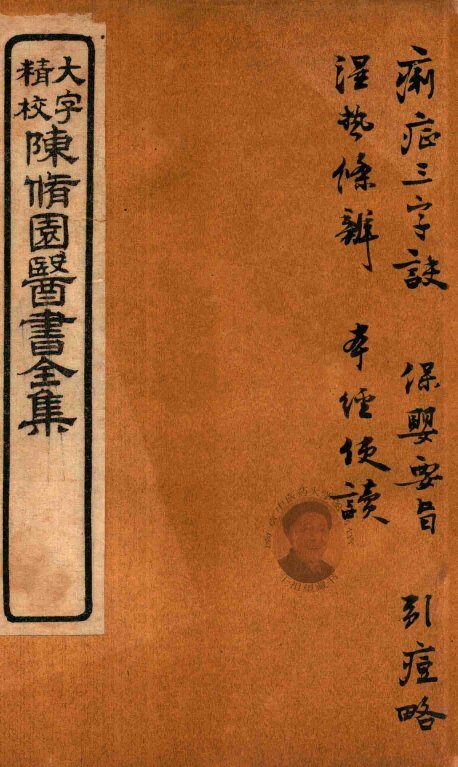 痢症三字訣　保嬰要旨　引痘略
湿热條辨　本經便讀
大字
精校
陳脩園醫書全集